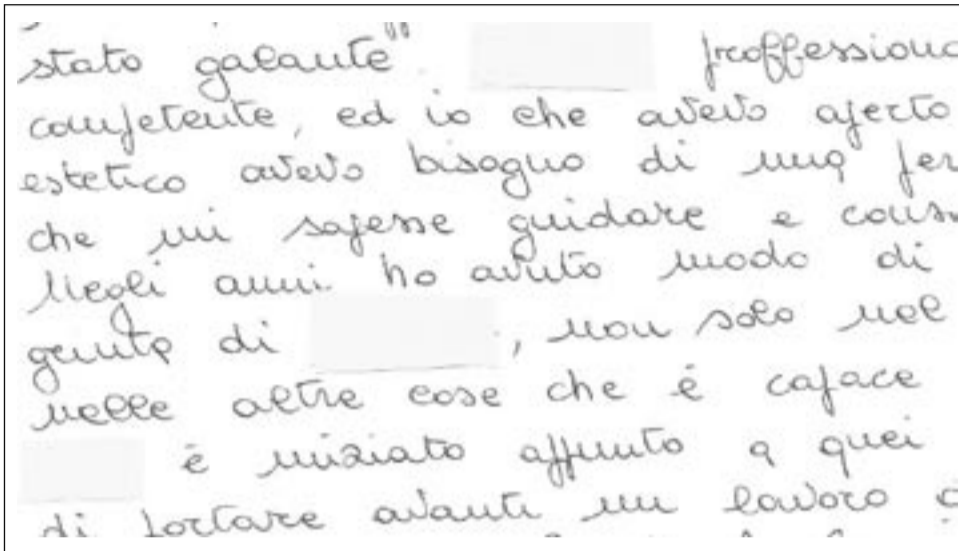 stato galante" proffessiona
competente, ed io che avevo aperto
estetico avevo bisogno di una per
che mi sapesse guidare e cons
Negli anni ho avuto modo di
gente di , non solo nel
nelle altre cose che é capace
é iniziato appunto a quei
di portare avanti un lavoro